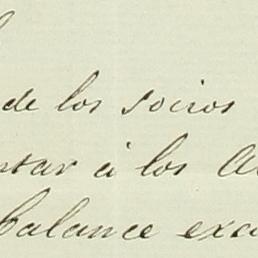 de los socios
ntar á los A
balance exa